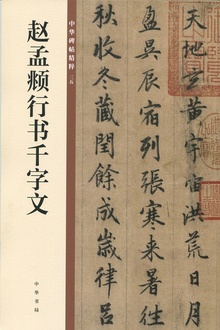 中华碑帖精粹
赵孟𫖯行书千字文
中华书局
天地玄黄宇宙洪荒日月
盈昃辰宿列張寒来暑往
秋收冬藏閏餘成歲律呂